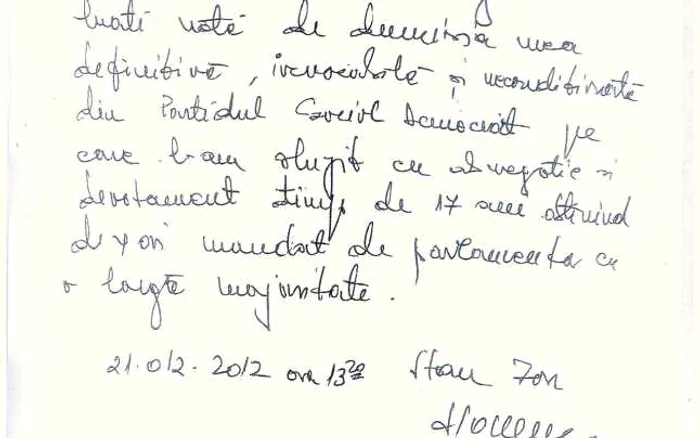 luați notă de demisia mea
definitivă, irevocabilă și necondiționată
din Partidul Social Democrat pe
care l-am slujit cu abnegație și
devotament timp de 17 ani obținind
de 4 ori mandat de parlamentar cu
o largă majoritate.
21.012.2012 ora 13²⁰ Stan Ion